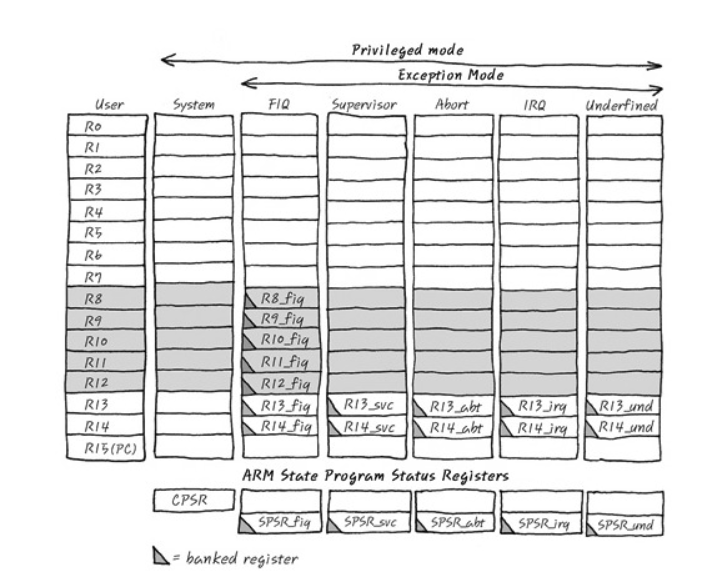 Privileged mode
Exception Mode
User System FIQ Supervisor Abort IRQ Underfined
R0
R1
R2
R3
R4
R5
R6
R7
R8 R8_fiq
R9 R9_fiq
R10 R10_fiq
R11 R11_fiq
R12 R12_fiq
R13 R13_fiq R13_svc R13_abt R13_irq R13_und
R14 R14_fiq R14_svc R14_abt R14_irq R14_und
R15(PC)
ARM State Program Status Registers
CPSR
SPSR_fiq SPSR_svc SPSR_abt SPSR_irq SPSR_und
= banked register